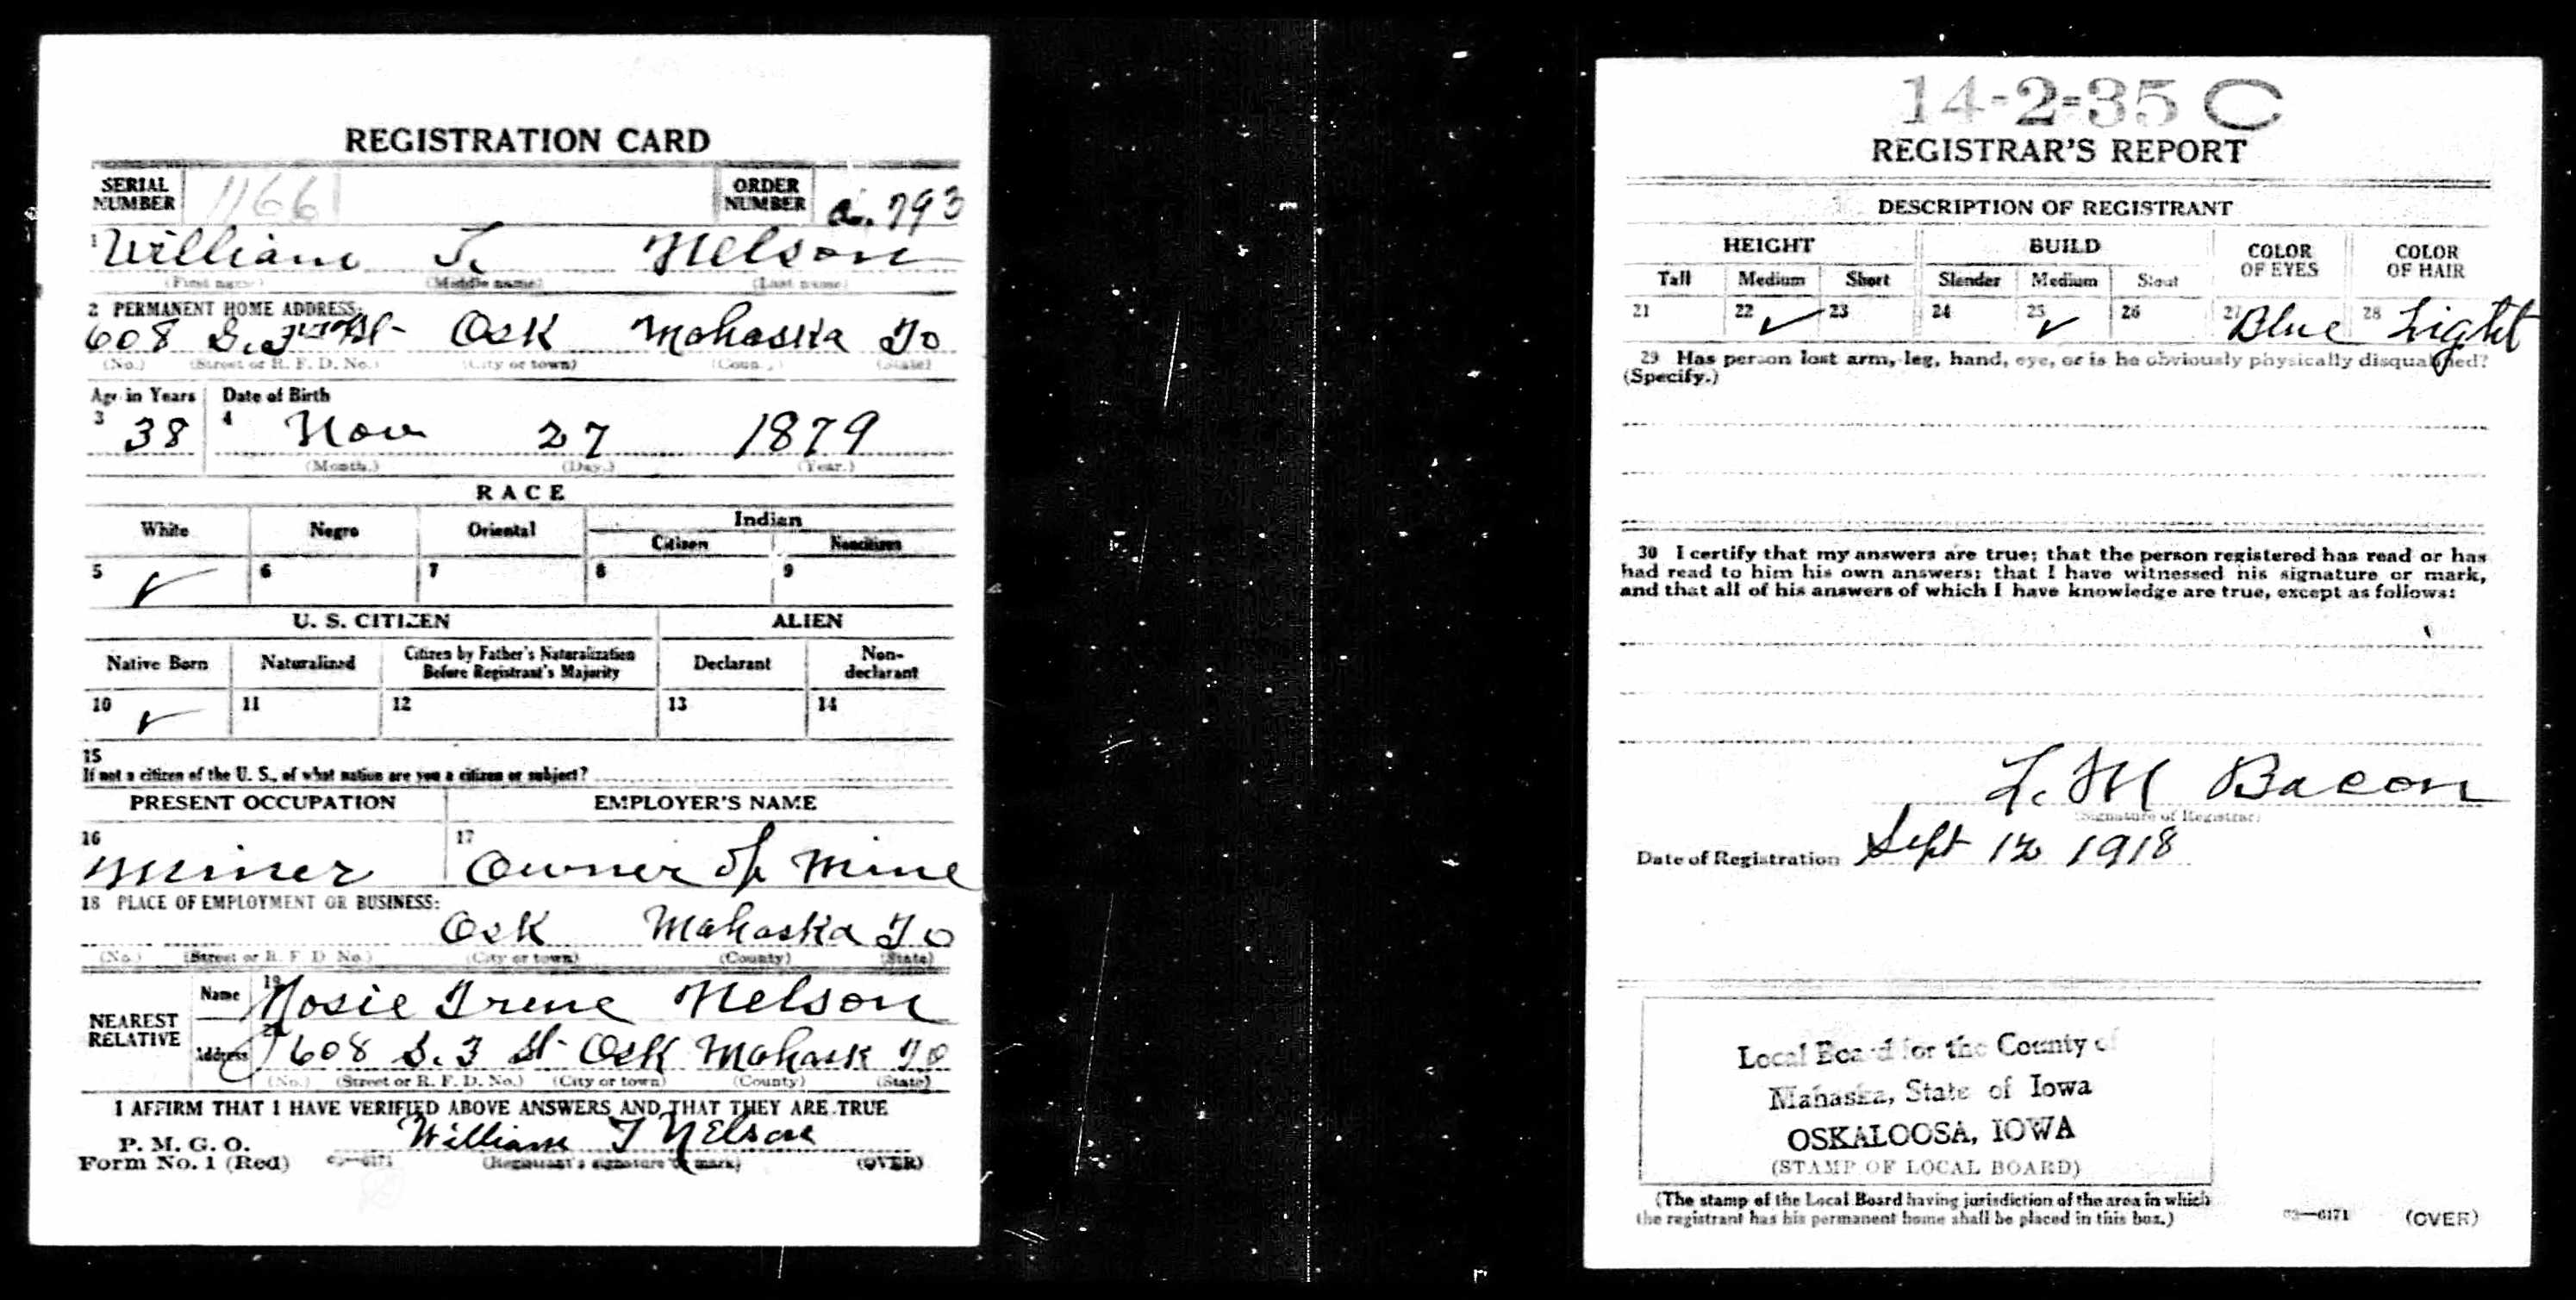 REGISTRATION CARD
SERIAL NUMBER 1166 ORDER NUMBER 793
1 William T. Nelson
(First name) (Middle name) (Last name)
2 PERMANENT HOME ADDRESS:
608 S. St Osk Mahaska Io
(No.) (Street or R. F. D. No.) (City or town) (County) (State)
Age in Years Date of Birth
3 38 4 Nov 27 1879
(Month.) (Day.) (Year.)
RACE
White Negro Oriental Indian
Citizen Noncitizen
5 ✓ 6 7 8 9
U. S. CITIZEN ALIEN
Native Born Naturalized Citizen by Father's Naturalization Before Registrant's Majority Declarant Non-declarant
10 ✓ 11 12 13 14
15
If not a citizen of the U. S., of what nation are you a citizen or subject?
PRESENT OCCUPATION EMPLOYER'S NAME
16 Miner 17 Owner of Mine
18 PLACE OF EMPLOYMENT OR BUSINESS:
Osk Mahaska Io
(No.) (Street or R. F. D. No.) (City or town) (County) (State)
NEAREST RELATIVE
Name 19 Rosie Irene Nelson
Address 608 S. 3 St Osk Mahask Io
(No.) (Street or R. F. D. No.) (City or town) (County) (State)
I AFFIRM THAT I HAVE VERIFIED ABOVE ANSWERS AND THAT THEY ARE TRUE
P. M. G. O.
Form No. 1 (Red) William T Nelson
(Registrant's signature or mark) (OVER)
14-2-35 C
REGISTRAR'S REPORT
DESCRIPTION OF REGISTRANT
HEIGHT BUILD COLOR OF EYES COLOR OF HAIR
Tall Medium Short Slender Medium Stout
21 22 ✓ 23 24 25 ✓ 26 27 Blue 28 Light
29 Has person lost arm, leg, hand, eye, or is he obviously physically disqualified?
(Specify.)
30 I certify that my answers are true; that the person registered has read or has
had read to him his own answers; that I have witnessed his signature or mark,
and that all of his answers of which I have knowledge are true, except as follows:
L. M Bacon
(Signature of Registrar)
Date of Registration Sept 12 1918
Local Board for the County of
Mahaska, State of Iowa
OSKALOOSA, IOWA
(STAMP OF LOCAL BOARD)
(The stamp of the Local Board having jurisdiction of the area in which
the registrant has his permanent home shall be placed in this box.)
03—6171 (OVER)